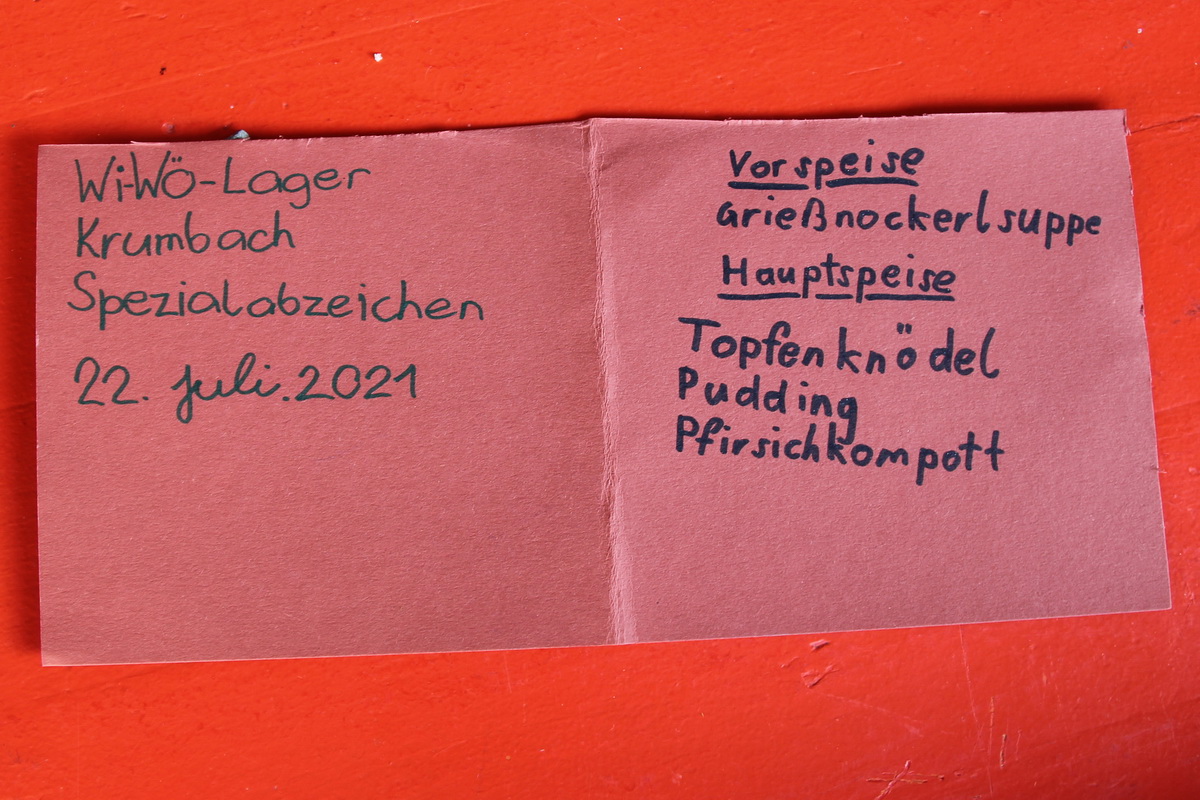 Wi-Wö-Lager
Krumbach
Spezialabzeichen
22. Juli.2021
Vorspeise
Grießnockerlsuppe
Hauptspeise
Topfenknödel
Pudding
Pfirsichkompott